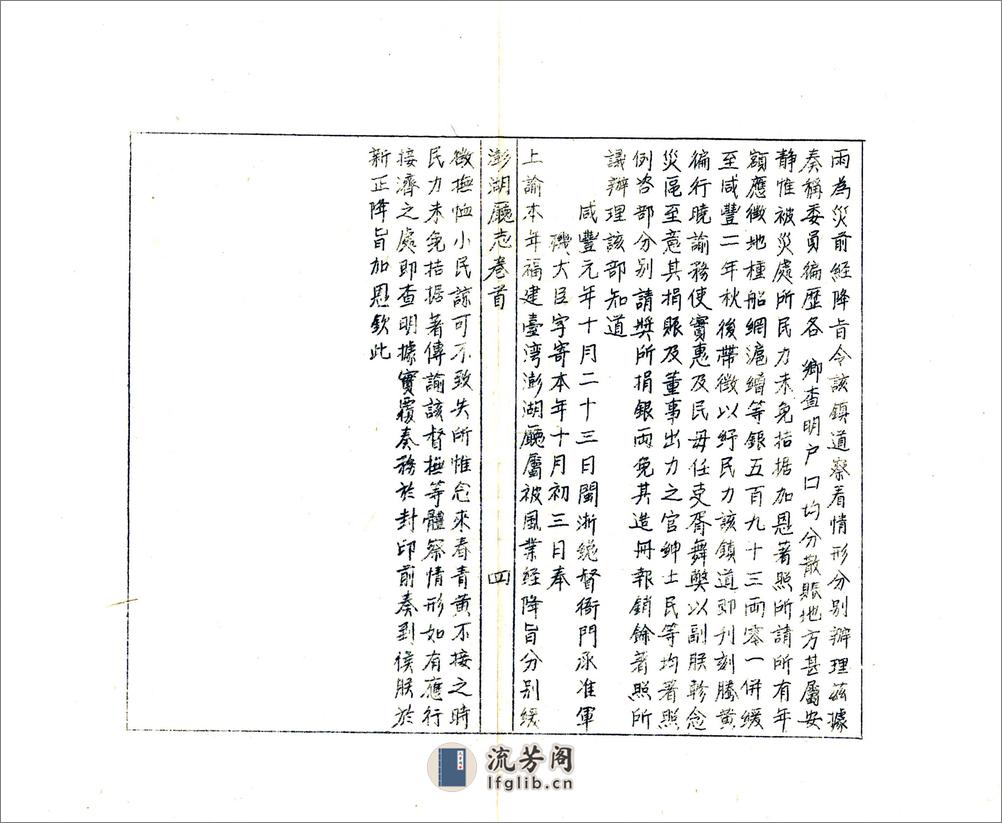 雨為災前經降旨令該鎮道察看情形分別辦理茲據
奏稱委員徧歷各 鄉查明戶口均分散賑地方甚屬安
靜惟被災處所民力未免拮据加恩著照所請所有年
額應徵地種船網滬繒等銀五百九十三兩零一併緩
至咸豐二年秋後帶徵以紓民力該鎮道即刊刻謄黃
徧行曉諭務使實惠及民毋任吏胥舞弊以副朕軫念
災區至意其捐賑及董事出力之官紳士民等均著照
例咨部分別請獎所捐銀兩免其造冊報銷餘著照所
議辦理該部知道
咸豐元年十月二十三日閩浙總督衙門承准軍
機大臣字寄本年十月初三日奉
上諭本年福建臺灣澎湖廳屬被風業經降旨分別緩
澎湖廳志卷首 四
徵撫恤小民諒可不致失所惟念來春青黃不接之時
民力未免拮据著傳諭該督撫等體察情形如有應行
接濟之處即查明據實覆奏務於封印前奏到候朕於
新正降旨加恩欽此
流芳阁
lfglib.cn